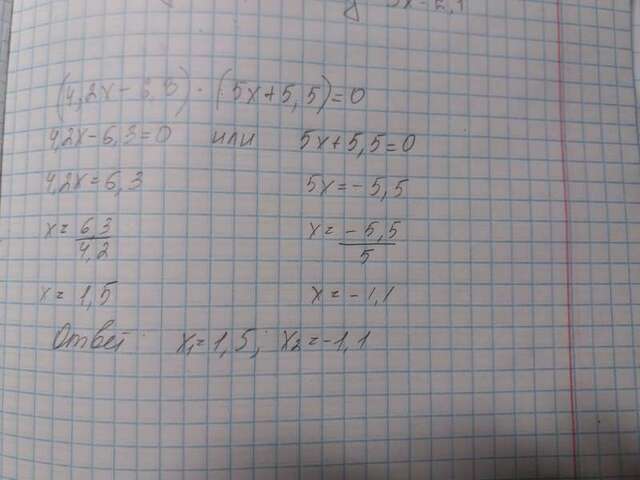 (4,2x-6,3)·(5x+5,5)=0
4,2x-6,3=0 или 5x+5,5=0
4,2x=6,3 5x=-5,5
x=6,3/4,2 x=-5,5/5
x=1,5 x=-1,1
Ответ x₁=1,5; x₂=-1,1